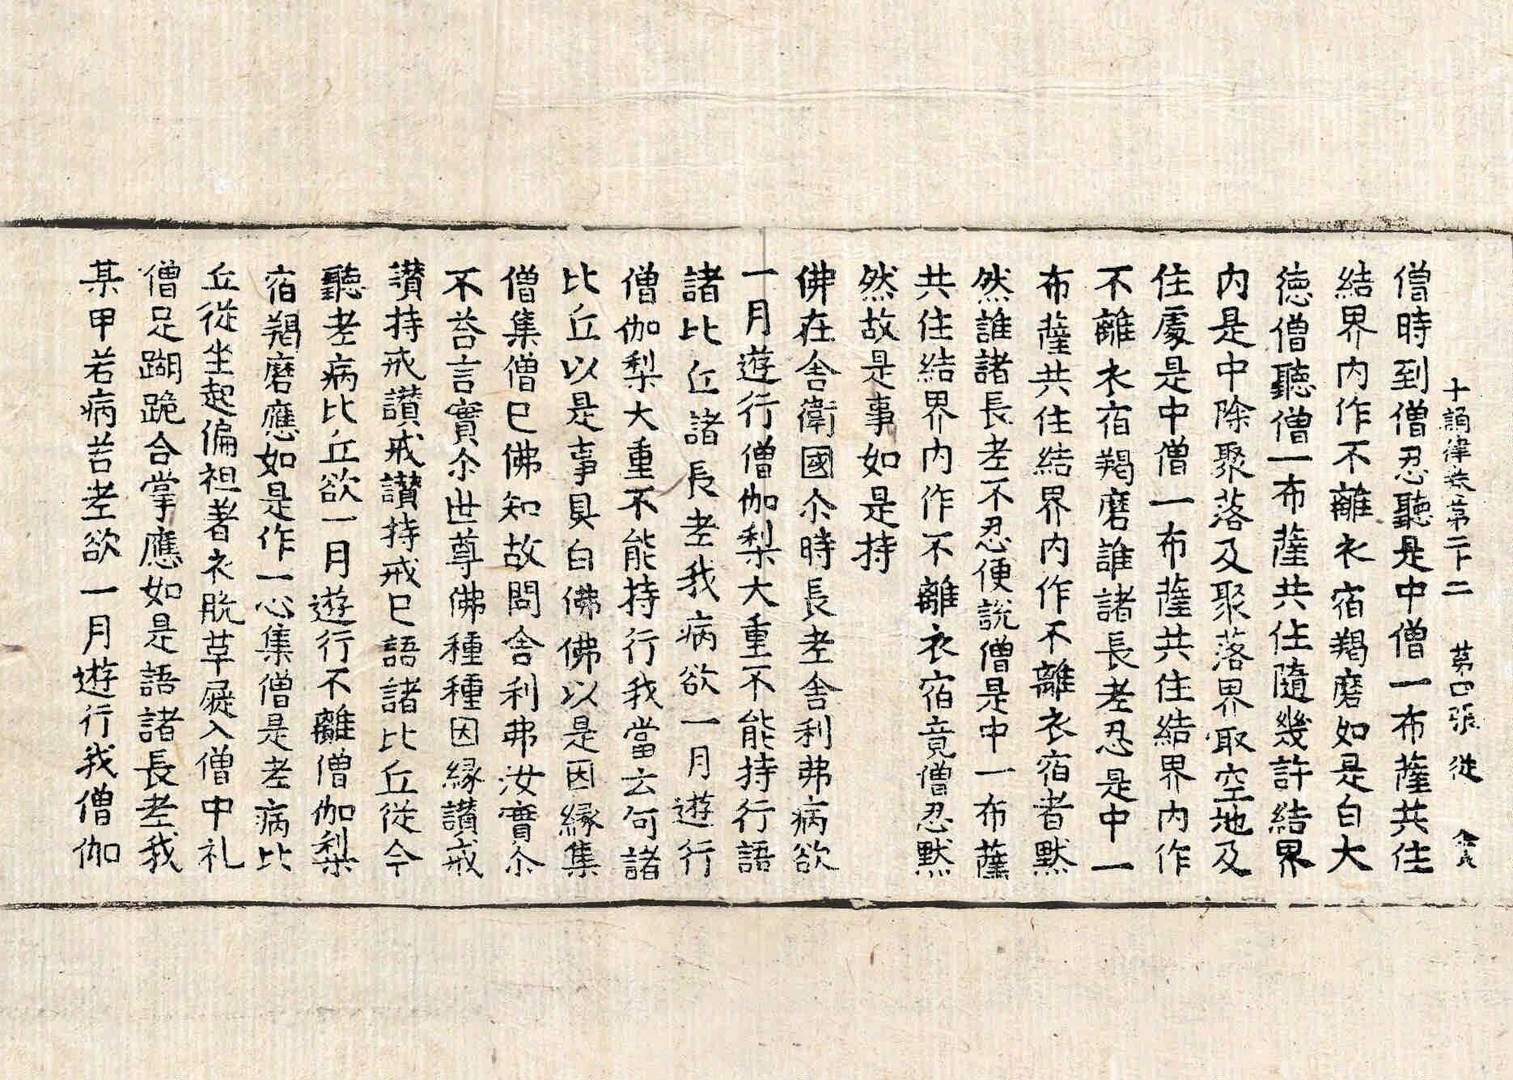 十誦律卷第二十二 第四張 從
僧時到僧忍聽是中僧一布薩共住
結界内作不離衣宿羯磨如是白大
徳僧聽僧一布薩共住隨幾許結界
内是中除聚落及聚落界取空地及
住處是中僧一布薩共住結界内作
不離衣宿羯磨誰諸長老忍是中一
布薩共住結界内作不離衣宿者默
然誰諸長老不忍便説僧是中一布薩
共住結界内作不離衣宿竟僧忍默
然故是事如是持
佛在舍衛國尒時長老舍利弗病欲
一月遊行僧伽梨大重不能持行語
諸比丘諸長老我病欲一月遊行
僧伽梨大重不能持行我當云何諸
比丘以是事具白佛佛以是因縁集
僧集僧已佛知故問舍利弗汝實尒
不荅言實尒世尊佛種種因縁讃戒
讃持戒讃戒讃持戒已語諸比丘從今
聽老病比丘欲一月遊行不離僧伽梨
宿羯磨應如是作一心集僧是老病比
丘從坐起偏袒著衣脱革屣入僧中礼
僧足䠒跪合掌應如是語諸長老我
某甲若病苦老欲一月遊行我僧伽